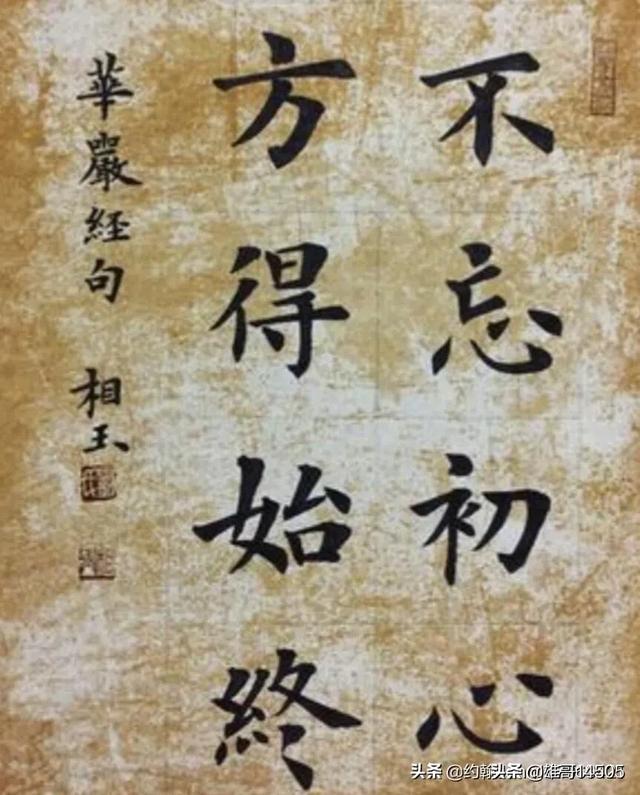 不忘初心
方得始終
華嚴經句 相玉
头条 @雄哥14505